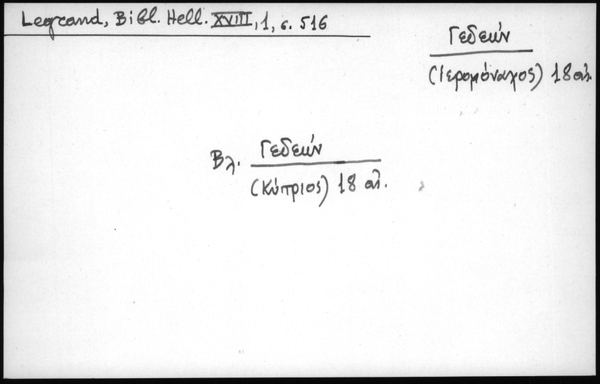 Legrand, Bibl. Hell. XVIII, 1, σ. 516
Γεδεών
(Ιερομόναχος) 18 αι.
Βλ. Γεδεών
(Κύπριος) 18 αι.